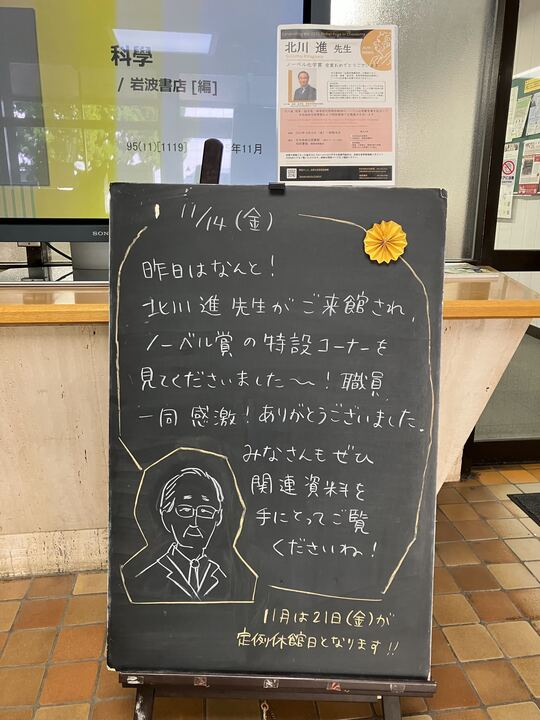 科學
/ 岩波書店 [編]
95(11)[1119]
年11月
SONY
北川 進 先生
ノーベル化学賞 受賞おめでとうございます
11/14 (金)
昨日はなんと!
北川 進 先生が ご来館され、
ノーベル賞 の 特設コーナーを
見てくださいました〜! 職員
一同 感激! ありがとうございました。
みなさんも ぜひ
関連資料を
手にとって ご覧
くださいね!
11月は 21日(金)が
定例休館日となります!!